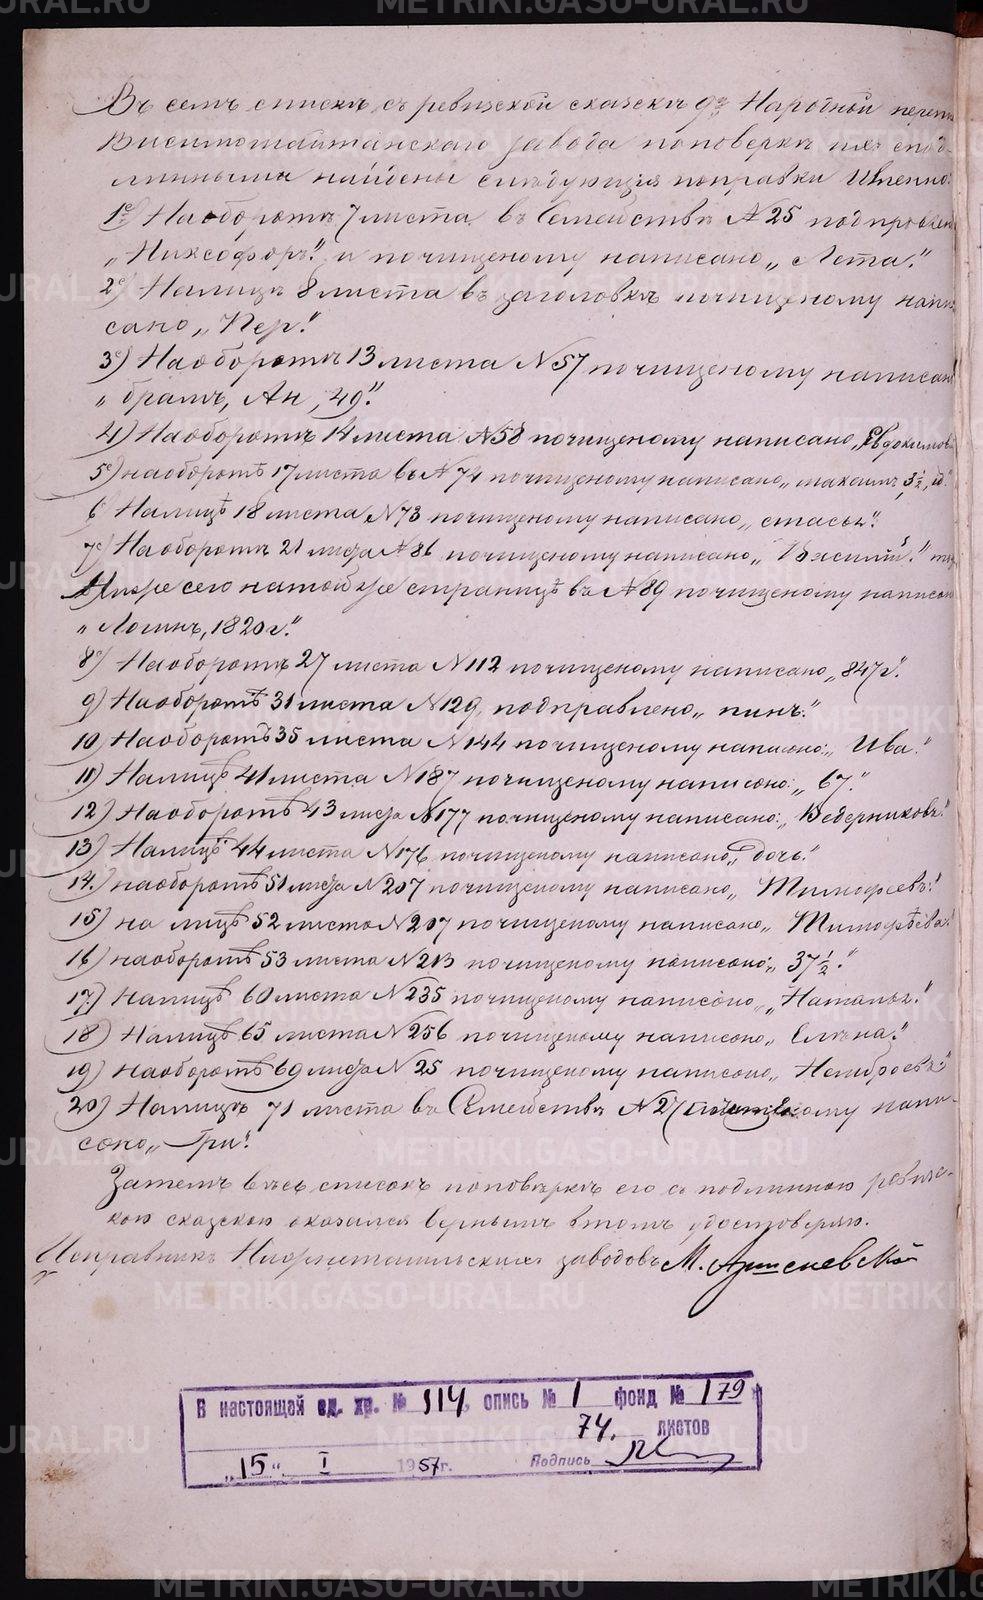 Въ семъ спискѣ съ ревизской сказки 9й Народной
Висимошайтанскаго завода поповеркѣ ихъ съ под-
линными найдены слѣдующія поправки Именно:
1е. Наоборотѣ 7 листа въ Семействѣ № 25
„Никофоръ." и почищеному написано „Лета."
2е) Налицѣ 8 листа въ заголовкѣ почищеному напи
сано „Пер."
3е) Наоборотѣ 13 листа № 57 почищеному написан
„братъ, Ан, 49."
4) Наоборотѣ 14 листа № 58 почищеному написано „Евдокимов
5е) наоборотѣ 17 листа въ № 74 почищеному написано „максимъ, 3 ½,
6 Налицѣ 18 листа № 73 почищеному написано
7е) Наоборотѣ 21 листа № 86 почищеному написано „Василій."
Ниже сего натойже страницѣ въ № 89 почищеному написан
„Логинъ, 1820 г."
8е) Наоборотѣ 27 листа № 112 почищеному написано „847 г."
9) Наоборотѣ 31 листа № 129, подправлено „пинъ."
10) Наоборотѣ 35 листа № 144 почищеному написано: „Ива."
11) Налицѣ 41 листа № 187 почищеному написоно: „67."
12) Наоборотѣ 43 листа № 177 почищеному написано: „Ведерниковъ."
13) Налицѣ 44 листа № 176 почищеному написано „дочь."
14.) наоборотѣ 51 листа № 207 почищеному написано „Тимофеевъ."
15) на лицѣ 52 листа № 207 почищеному написано „Тимофѣева."
16) наоборотѣ 53 листа № 213 почищеному написоно: „37 ½."
17) Налицѣ 60 листа № 235 почищеному написоно „Наталья."
18) Налицѣ 65 листа № 256 почищеному написоно „Елѣна."
19) наоборотѣ 69 листа № 25 почищеному написоно
20) Налицѣ 71 листа въ Семействѣ № 27 почищеному напи-
сано „Гри."
Затемъ весь списокъ поповѣркѣ его съ подлинною ревизс-
кою сказкою оказался вернымъ втомъ удостоверяю.
Исправникъ Нижнетагильскихъ заводовъ М.
В настоящей ед. хр. № 114, опись № 1 фонд № 179
74. листов
„15" I 1957 г. Подпись
METRIKI.GASO-URAL.RU